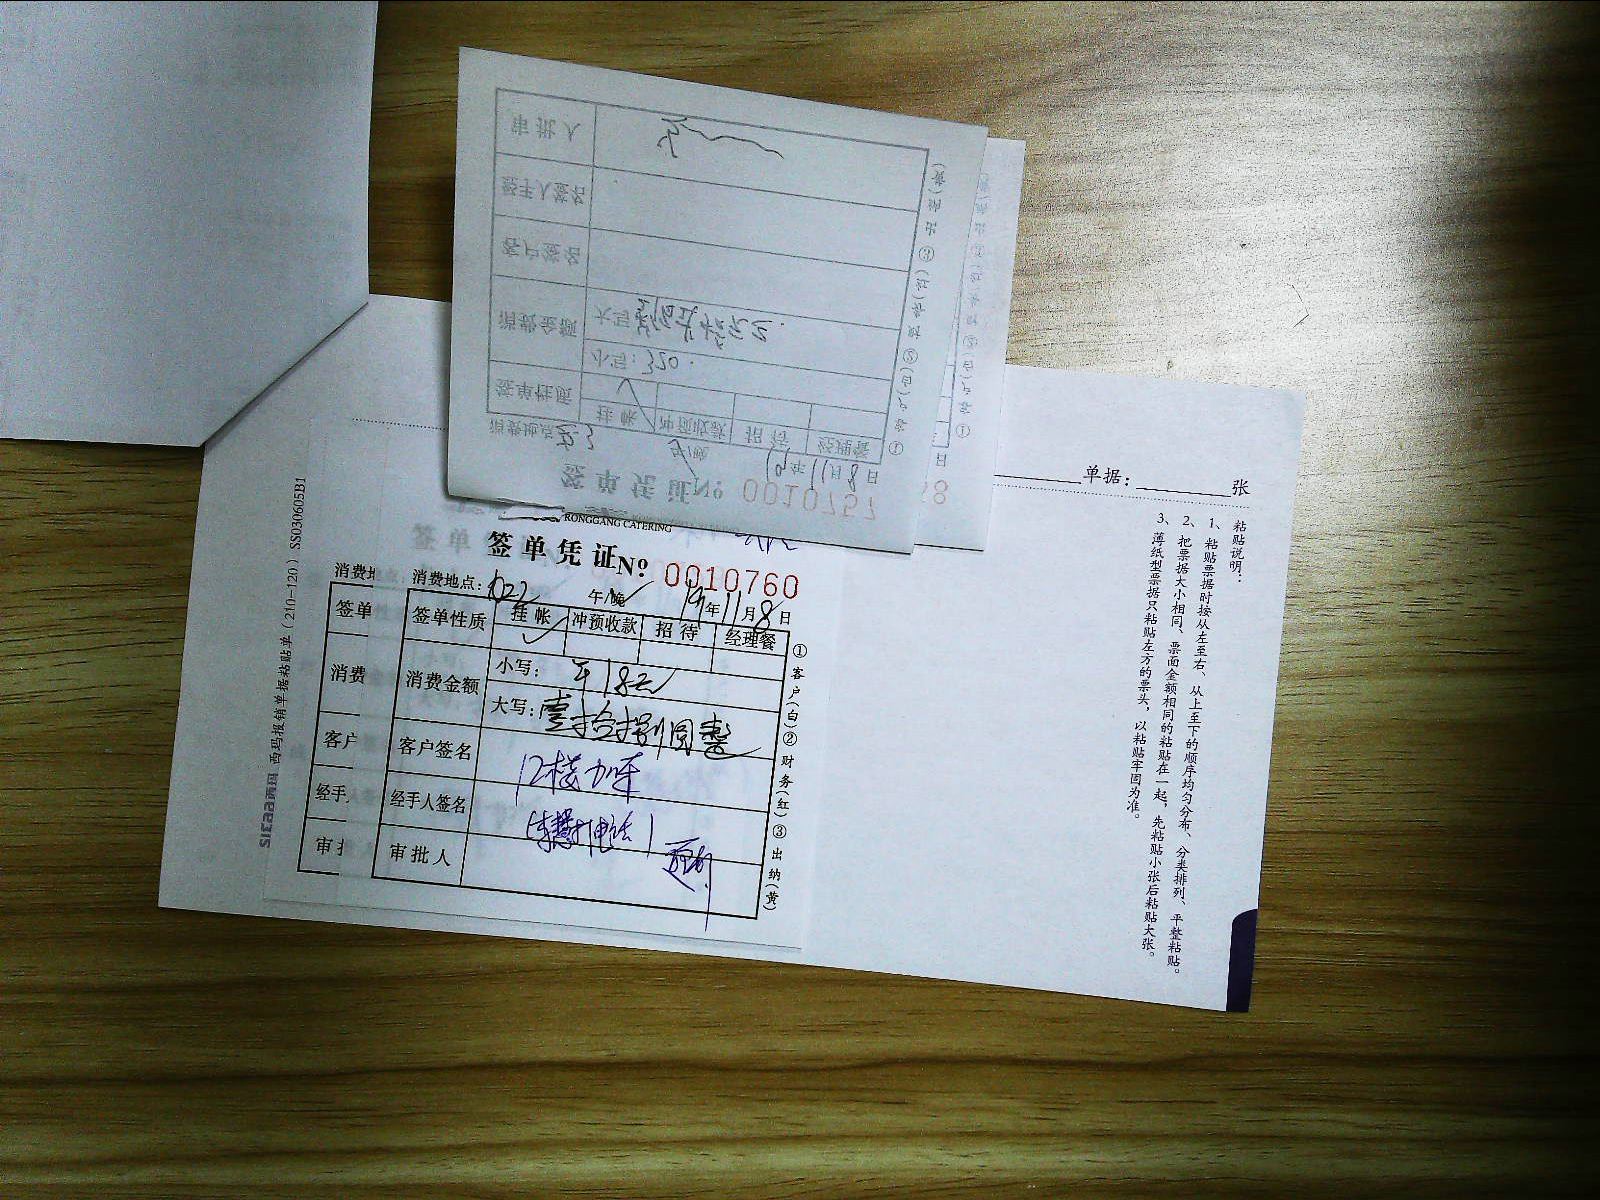 审批人
经手人签名
客户签名
消费金额 大写
小写：320.
签单性质 挂帐 冲预收款 招待 经理餐
消费地点 午/晚 19年11月8日
签单凭证№ 0010757
①客户(白)②财务(红)③出纳(黄)
58
日
RONGGANG CATERING
签单凭证№ 0010760
消费地点：1022 午/晚 19年11月8日
签单性质 挂帐 冲预收款 招待 经理餐
消费金额 小写： 18元
大写：壹拾捌圆整
客户签名 12楼加
经手人签名
审批人
①客户(白)②财务(红)③出纳(黄)
消费地
签单
消费
客户
经手
审批
SIMAA西玛 西玛报销单据粘贴单（210-120）SS030605B1
单据：________张
粘贴说明：
1、粘贴票据时按从左至右、从上至下的顺序均匀分布、分类排列、平整粘贴。
2、把票据大小相同、票面金额相同的粘贴在一起，先粘贴小张后粘贴大张。
3、薄纸型票据只粘贴左方的票头，以粘贴牢固为准。